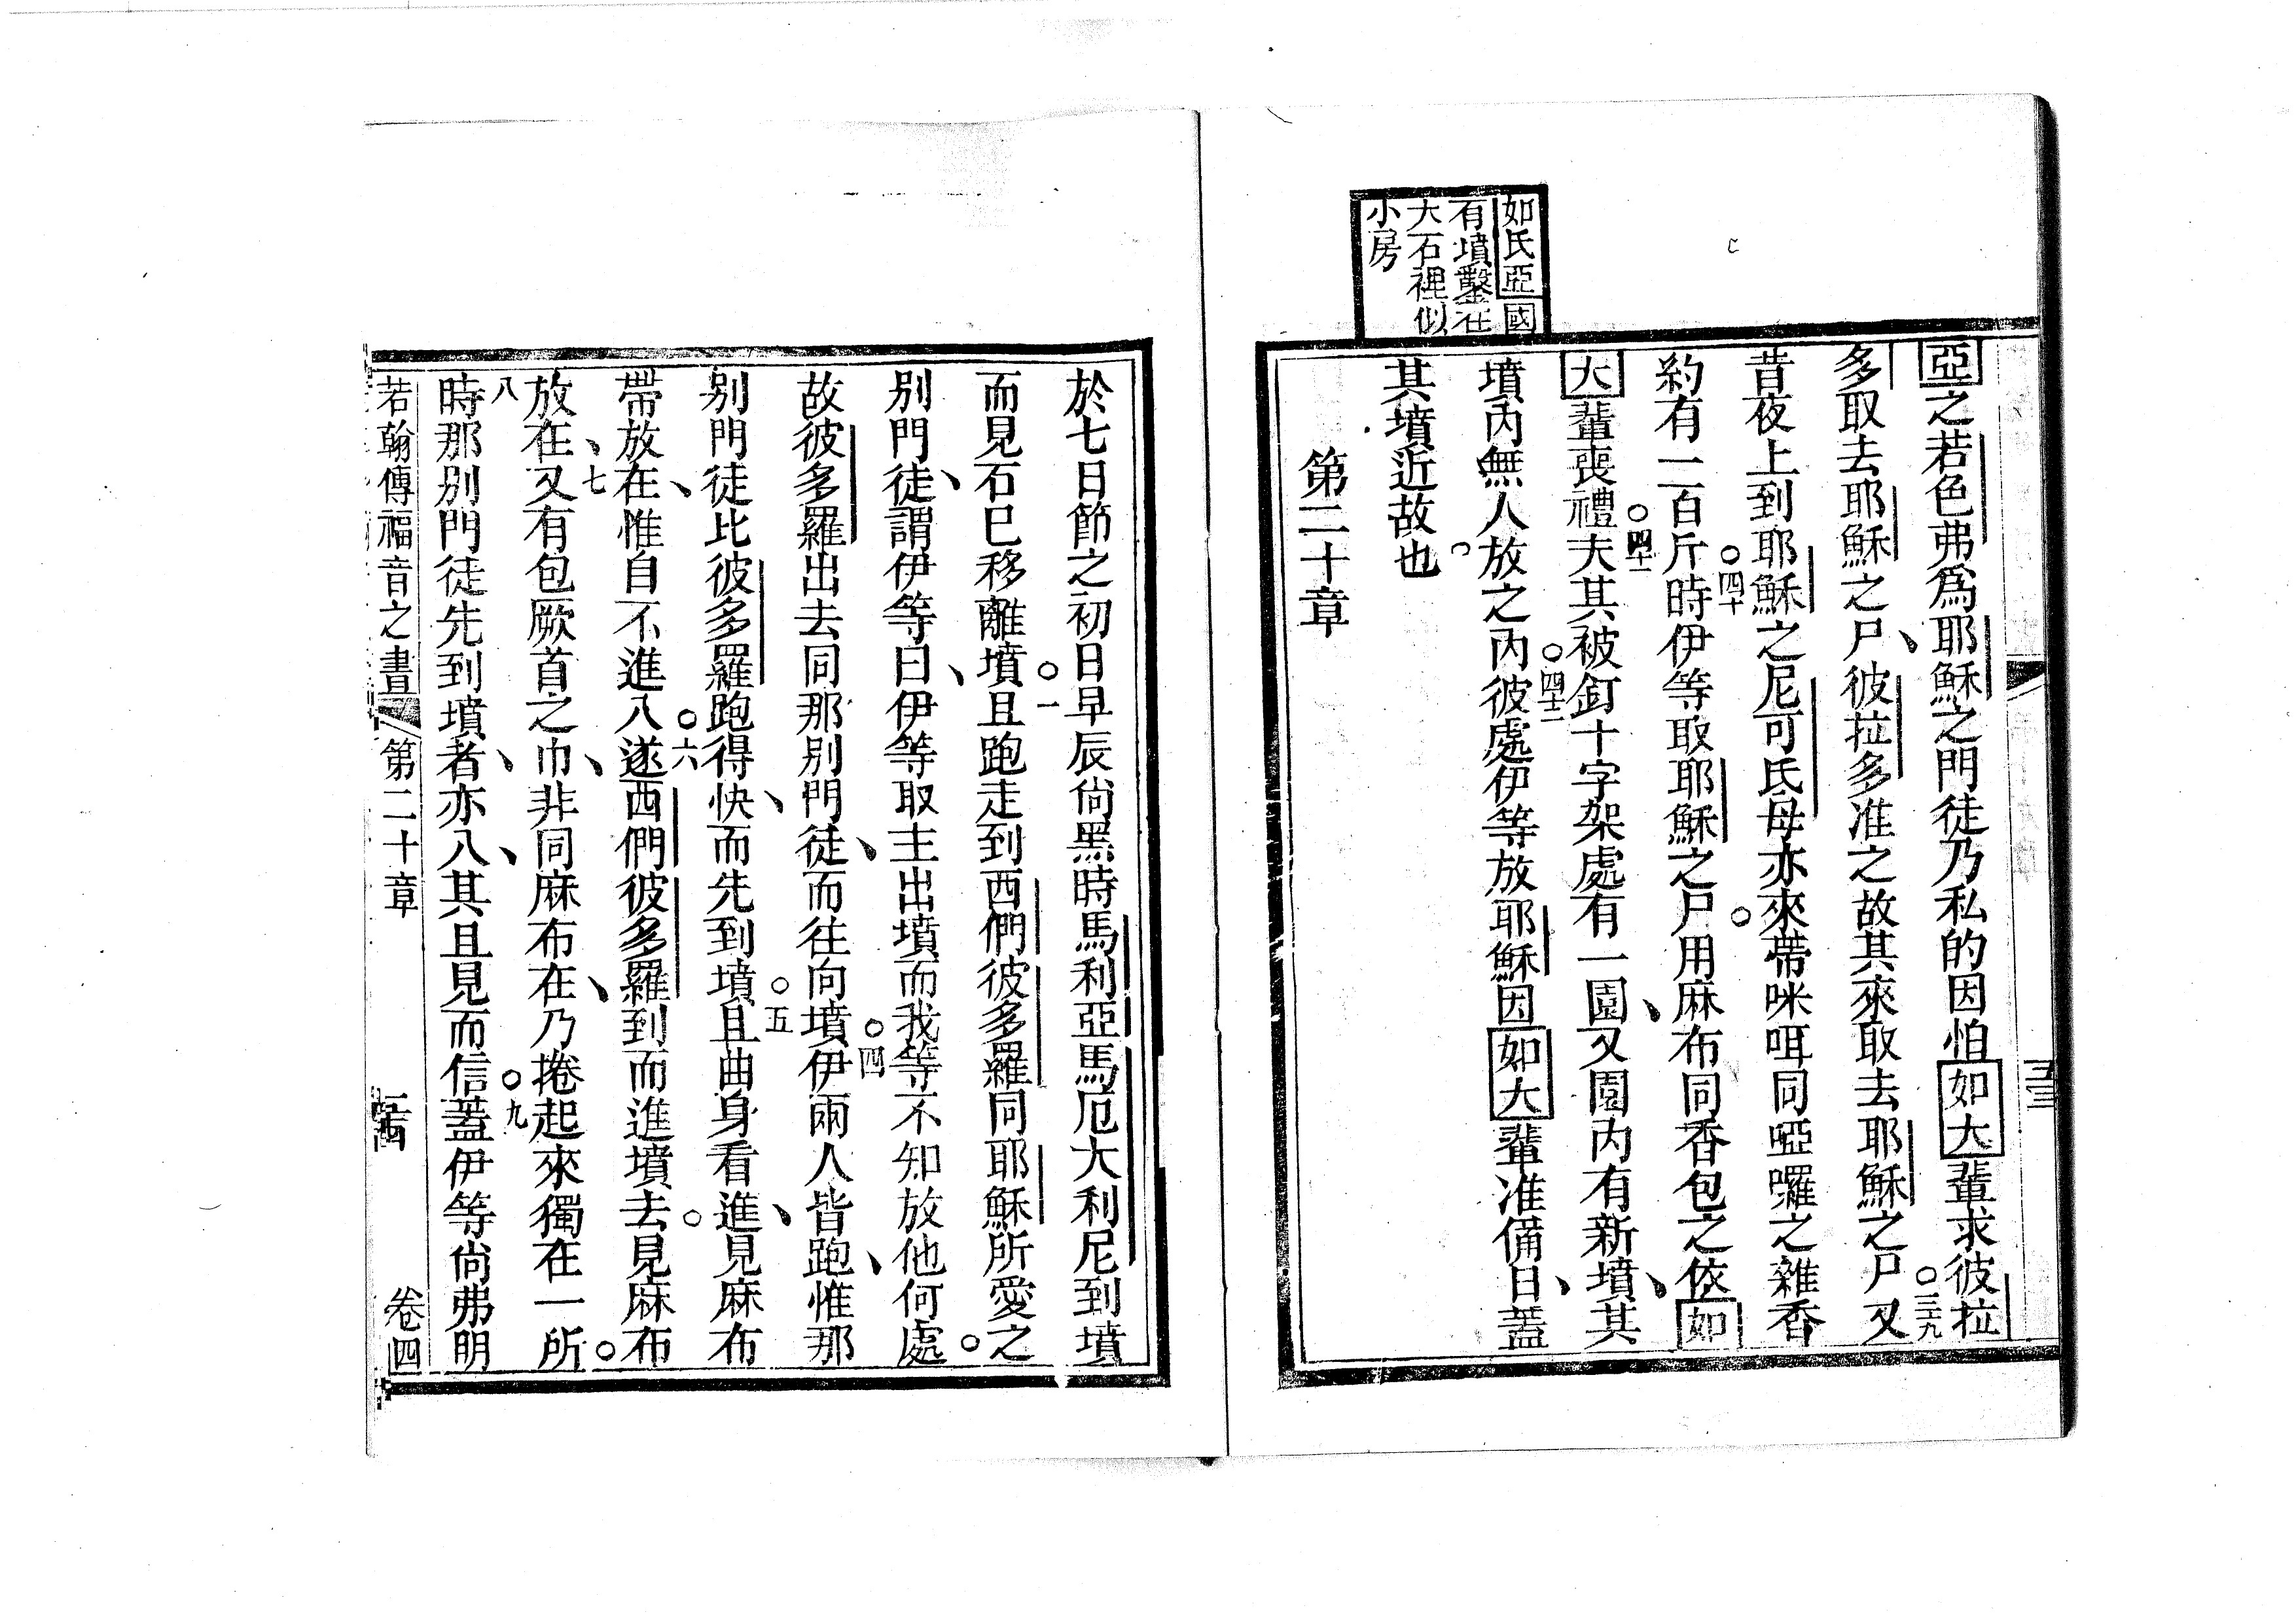 如氏亞國
有墳鑿在
大石裡似
小房
亞之若色弗爲耶穌之門徒乃私的因怕如大輩求彼拉
多取去耶穌之尸、彼拉多准之故其來取去耶穌之尸○三九又
昔夜上到耶穌之尼可氏母亦來帶咪咡同啞囉之雜香
約有二百斤○四十時伊等取耶穌之尸○用麻布同香包之依如
大輩喪禮○四十一夫其被釘十字架處有一園、又園內有新墳、其
墳內無人放之○四十二內彼處伊等放耶穌因如大輩准備日、蓋
其墳近○故也
第二十章
於七日節之初日早辰尙黑時馬利亞馬厄大利尼到墳
而見石已移離墳○一且跑走到西們彼多羅同耶穌所愛之
別門徒、謂伊等曰、伊等取主出墳而我等不知放他何處○
故彼多羅出去同那別門徒、而往向墳○四伊兩人皆跑、惟那
別門徒比彼多羅跑得快、而先到墳○五且曲身看進、見麻布
帶放在、惟自不進入○六遂西們彼多羅到而進墳去○見麻布
放在、七又有包厥首之巾、非同麻布在、乃捲起來獨在一所○
八時那別門徒先到墳者、亦入、其且見而信○九蓋伊等尙弗明
若翰傳福音之書 第二十章 卷四